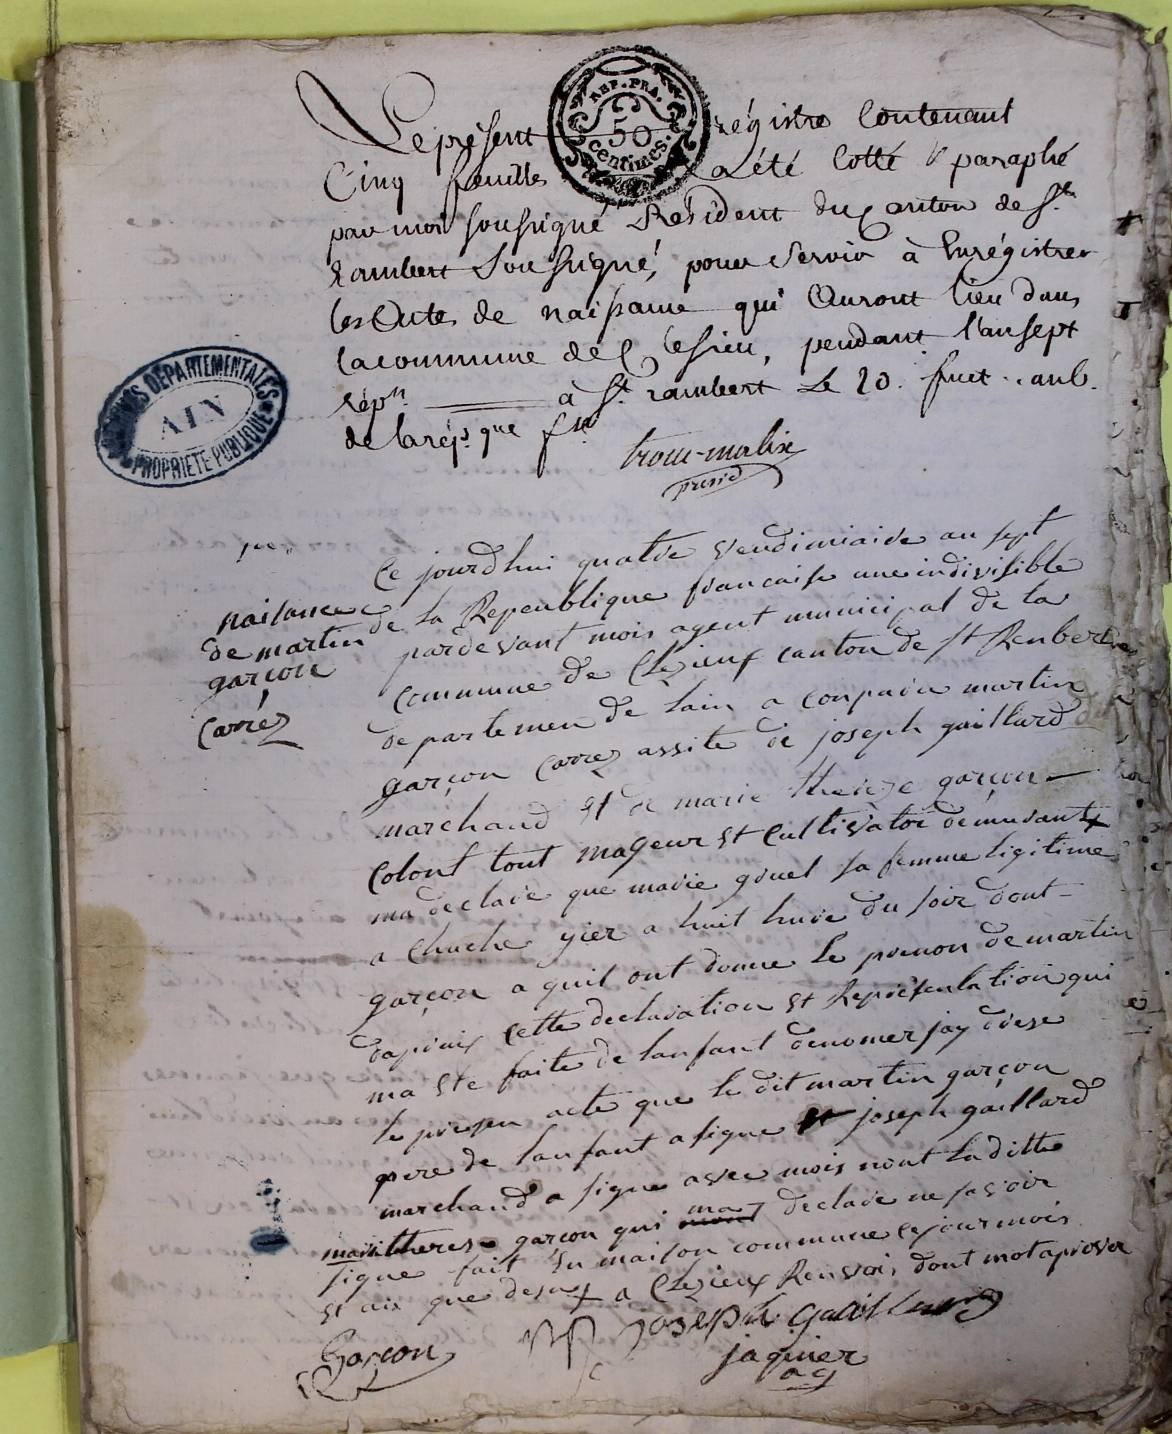 REP. FRA.
50
centimes.
Le présent régistre Contenant
Cinq feuilles a été Cotté & paraphé
par moi soussigné Président du Canton de St.
rambert Soussigné, pour servir à Enrégistrer
les Actes de naissance qui Auront lieu dans
la commune de Clesieu, pendant l'an sept
rép.n à St. rambert Le 20. fruct. an 6.
de la rép.que
presid
ARCHIVES DÉPARTEMENTALES
AIN
PROPRIÉTÉ PUBLIQUE
Ce jourdhui quatre vendimiaire an sept
naisance
de martin
garçon
Carrez
de la Republique francaise une indivisible
pardevant mois agent municipal de la
commune de Clezieux canton de st Renbert
departemen de lain a conparu martin
garçon Carrez assité de joseph gaillard
marchand et de marie therese garçon
Colont tout mageur et Cultivator demurant
ma declaré que marie gruel sa femme ligitime
a Cluche yier a huit hure du soir dont
garçon a quil ont donne le prenon de martin
dapries cette declaration et Represantation qui
ma ete faite de lanfant denomer jay drese
le presen acte que le dit martin garçon
pere de lanfant a signe et joseph gaillard
marchand a signe avec mois nont la ditte
marie therese garçon qui ma declare ne savoir
signe fait En maison commune ce jour mois
et aix que desu a Clezieux Renvois dont mot aprover
Garçon joseph gaillard
jaquier
ag